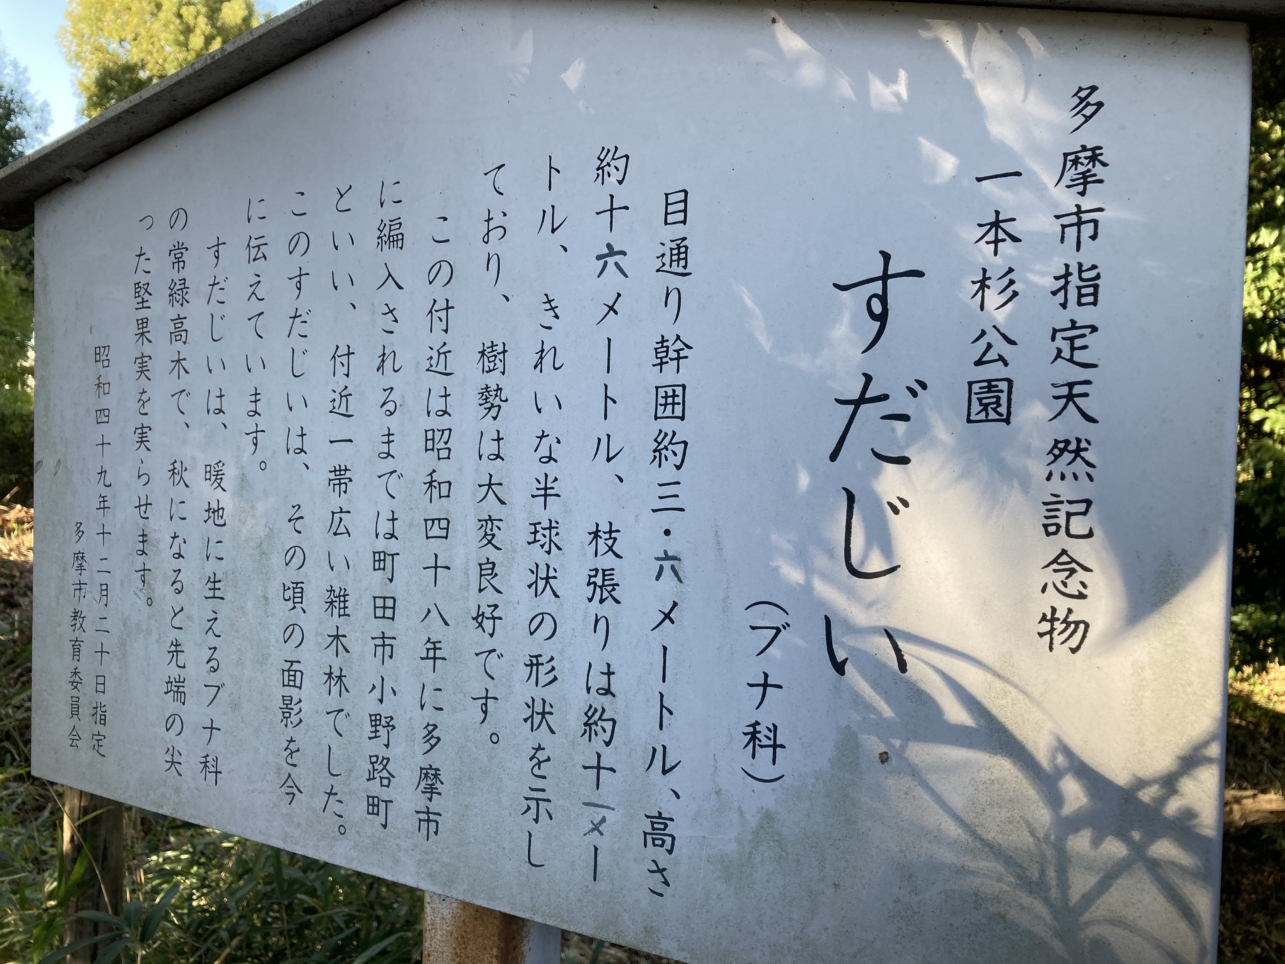 多摩市指定天然記念物
一本杉公園
すだじい
（ブナ科）
目通り幹囲約三・六メートル、高さ
約十六メートル、枝張りは約十一メー
トル、きれいな半球状の形状を示し
ており、樹勢は大変良好です。
この付近は昭和四十八年に多摩市
に編入されるまでは町田市小野路町
といい、付近一帯広い雑木林でした。
このすだじいは、その頃の面影を今
に伝えています。
すだじいは、暖地に生えるブナ科
の常緑高木で、秋になると先端の尖
った堅果実を実らせます。
昭和四十九年十二月二十日指定
多摩市教育委員会